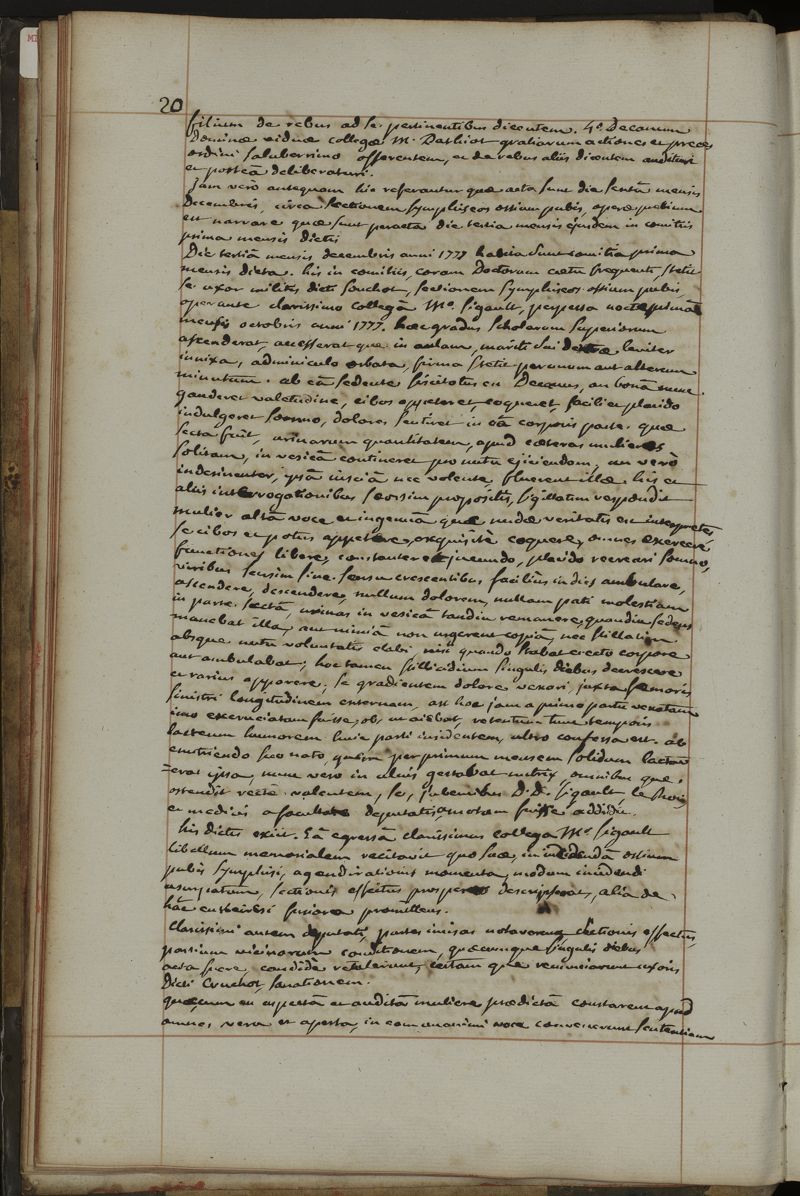 20
filium de rebus ad se pertinentibus dicentem. 4° Decanum
Dominæ viduæ collegæ M. Bathiot gratiarum actiones et preces
ordini saluberrimo offerentem, et de rebus aliis dicentem audituri
et posteà deliberaturi.
Jam verò antequam hic referantur quæ acta sunt die sextâ mensis
Decembris, circa sectionem Symphiseos ossium pubis, operæ pretium
est narrare quæ sunt peracta die tertia mensis ejusdem in comitiis
prima mensis dictis
Die tertiâ mensis decembris anni 1777 habita sunt comitia prima
mensis dicta. his in comitiis, coram Doctorum cœtu frequenti, stetit
se uxor militis dicti Souchot, sectionem Symphiseos ossium pubis,
operante clarissimo collegâ Mo. Sigault, perpessa nocte primâ
mensis octobris anni 1777. hæc gradus Scholarum Superiorum
ascenderat, accesserat que in aulam, mariti sui dextræ leviter
innixa, adminiculo orbata, firma stetit per unum aut alterum
minutum. ab eâ sedente sciscitatus est Decanus, an bonâ nunc
gauderet valetudine, cibos appeteret, coqueret, facili et placido
indulgeret somno, dolores sentiret in eâ corporis parte quæ
secta fuit, urinarum quantitatem, apud cæteras mulieres
solitam, in vesicâ contineret pro nutu ejiciendam, an verò
indesinenter, ipsâ insciâ nec volente, fluerent illæ. his et
aliis interrogationibus seorsim propositis, sigillatim respondit
mulier altâ voce et ingenuâ quæ nudæ veritatis est interpretes
se cibos et potus appetere, exquisitè coquere, omnes exercere
functiones libere, constanter et jucundo, placido recreari somno,
viribus sensim sine sensu crescentibus faciliùs in dies ambulare,
ascendere, descendere, nullum dolorem, nullam pati molestiam
in parte sectâ, urinas in vesicâ tandiu remanere, quandiu sedens
manebat illa, aut nimiâ non urgerent copiâ, nec stillatim
absque nutu voluntatis elabi nisi quando stabat erecto corpore
aut ambulabat; hoc tamen stillicidium singulis diebus decrescere
et rarius apparere; se gradientem dolore vexari juxta femoris
sinistri longitudinem externam, ast hoc jam a primo partu vexatam
imo excruciatam fuisse, ob, ut aiebat, retentum tunc temporis
lacteum humorem huic parti insidentem, ultro confessa est. ab
enutriendo suo nato, quem per primum mensem solidum lactav
=erat ipsa, nunc vero in ulnis gestabat nutrix, omnibus que
ostendit rectè valentem, se, jubentibus D.D. Sigault, le Roy,
et medicis a facultate deputatis, amotam fuisse addidit.
his dictis exiit. Eâ egressâ clarissimus collega Mr. Sigault
libellum memorialem recitavit quo suæ, in incidendâ ossium
pubis Symphisi, agendi rationis momenta, modum incidendi
usurpatum, sectionis effectus prosperos descripserat, alia de
hâc encheiresi fusiora promittens.
Clarissimi autem deputati, partes incisas notaverunt, sectionis effectus,
partium vicinarum conditionem, quæcumque singulis diebus
acta fuere, candidè retulerunt, certam que renunciarunt uxoris
Dicti Souchot, sanationem.
quæ cum ex inspectâ et auditâ muliere prædictâ constarent apud
omnes vera et aperta, in eam unanimi voce convenerunt sententiam